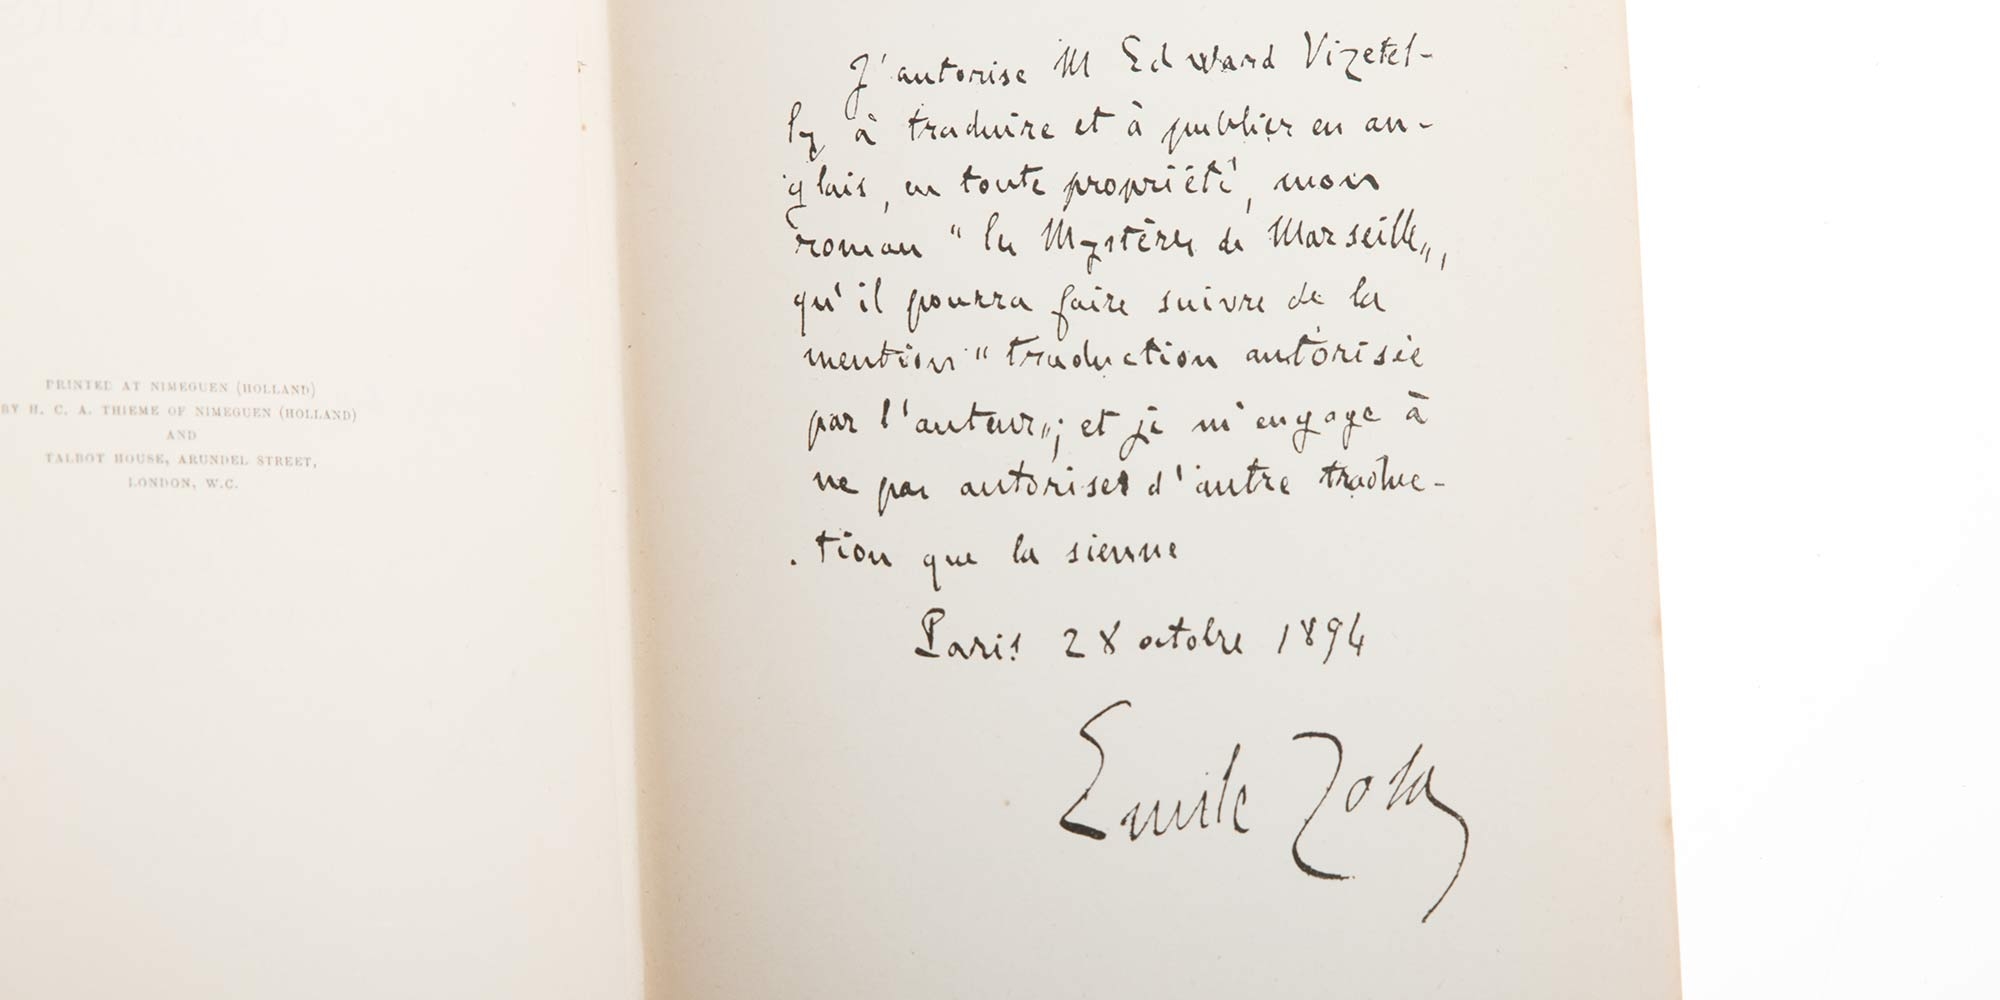 PRINTED AT NIMEGUEN (HOLLAND)
BY H. C. A. THIEME OF NIMEGUEN (HOLLAND)
AND
TALBOT HOUSE, ARUNDEL STREET,
LONDON, W.C.
J'autorise M Edward Vizetel-
ly à traduire et à publier en an-
glais, en toute propriété, mon
roman "les Mystères de Marseille",
qu'il pourra faire suivre de la
mention "traduction autorisée
par l'auteur"; et je m'engage à
ne pas autoriser d'autre traduc-
tion que la sienne
Paris 28 octobre 1894
Emile Zola